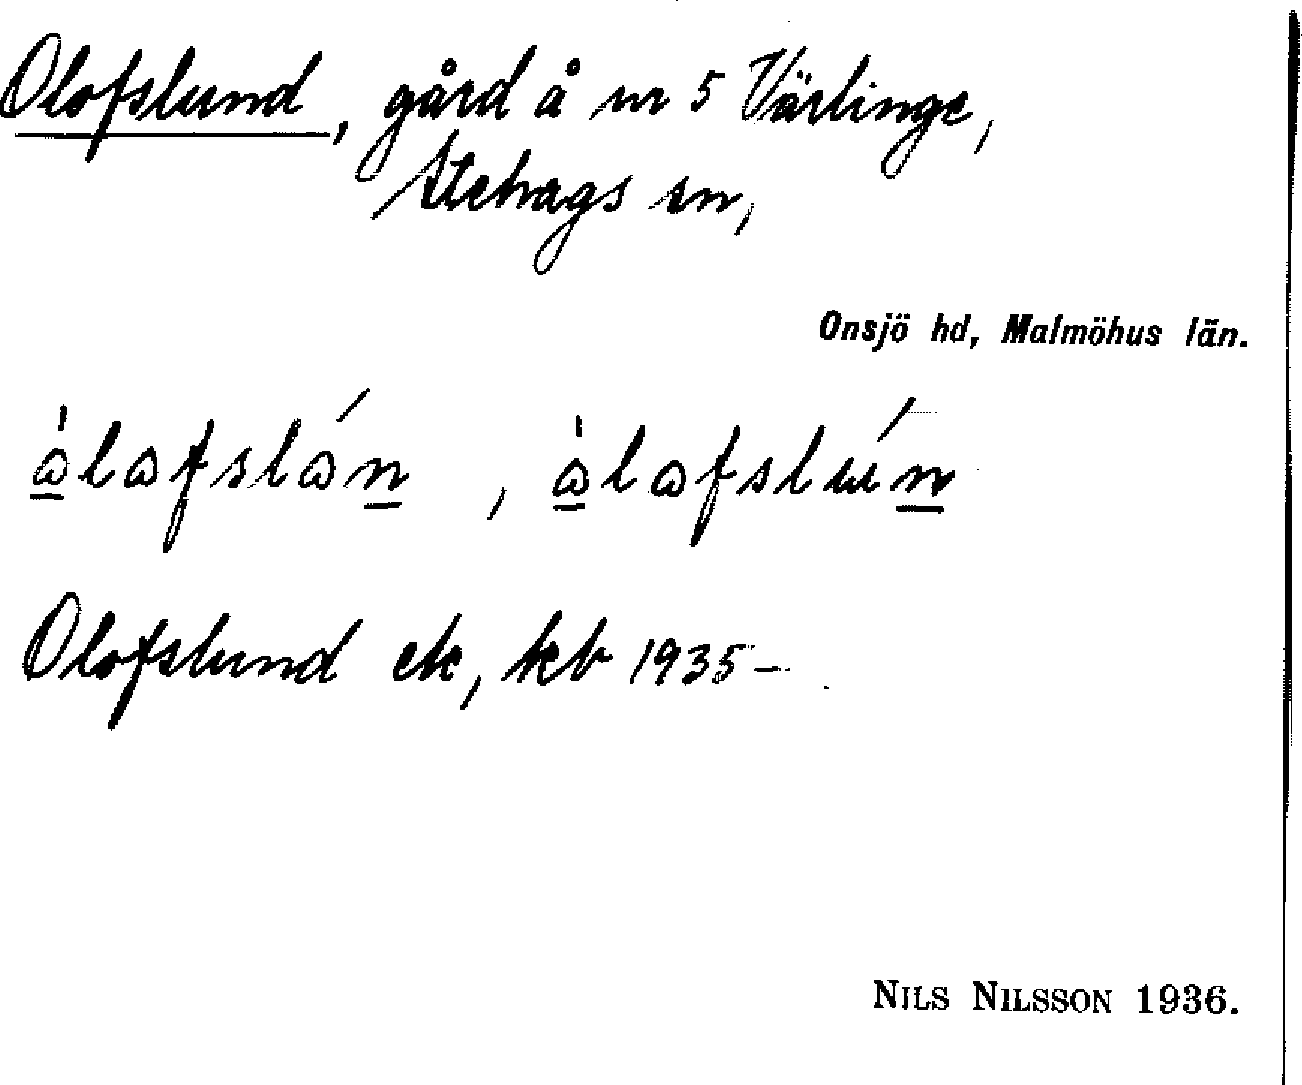 Olofslund, gård å nr 5 Värlinge,
Stehags sn,
Onsjö hd, Malmöhus län.
Olofslund ek, kb 1935–
NILS NILSSON 1936.